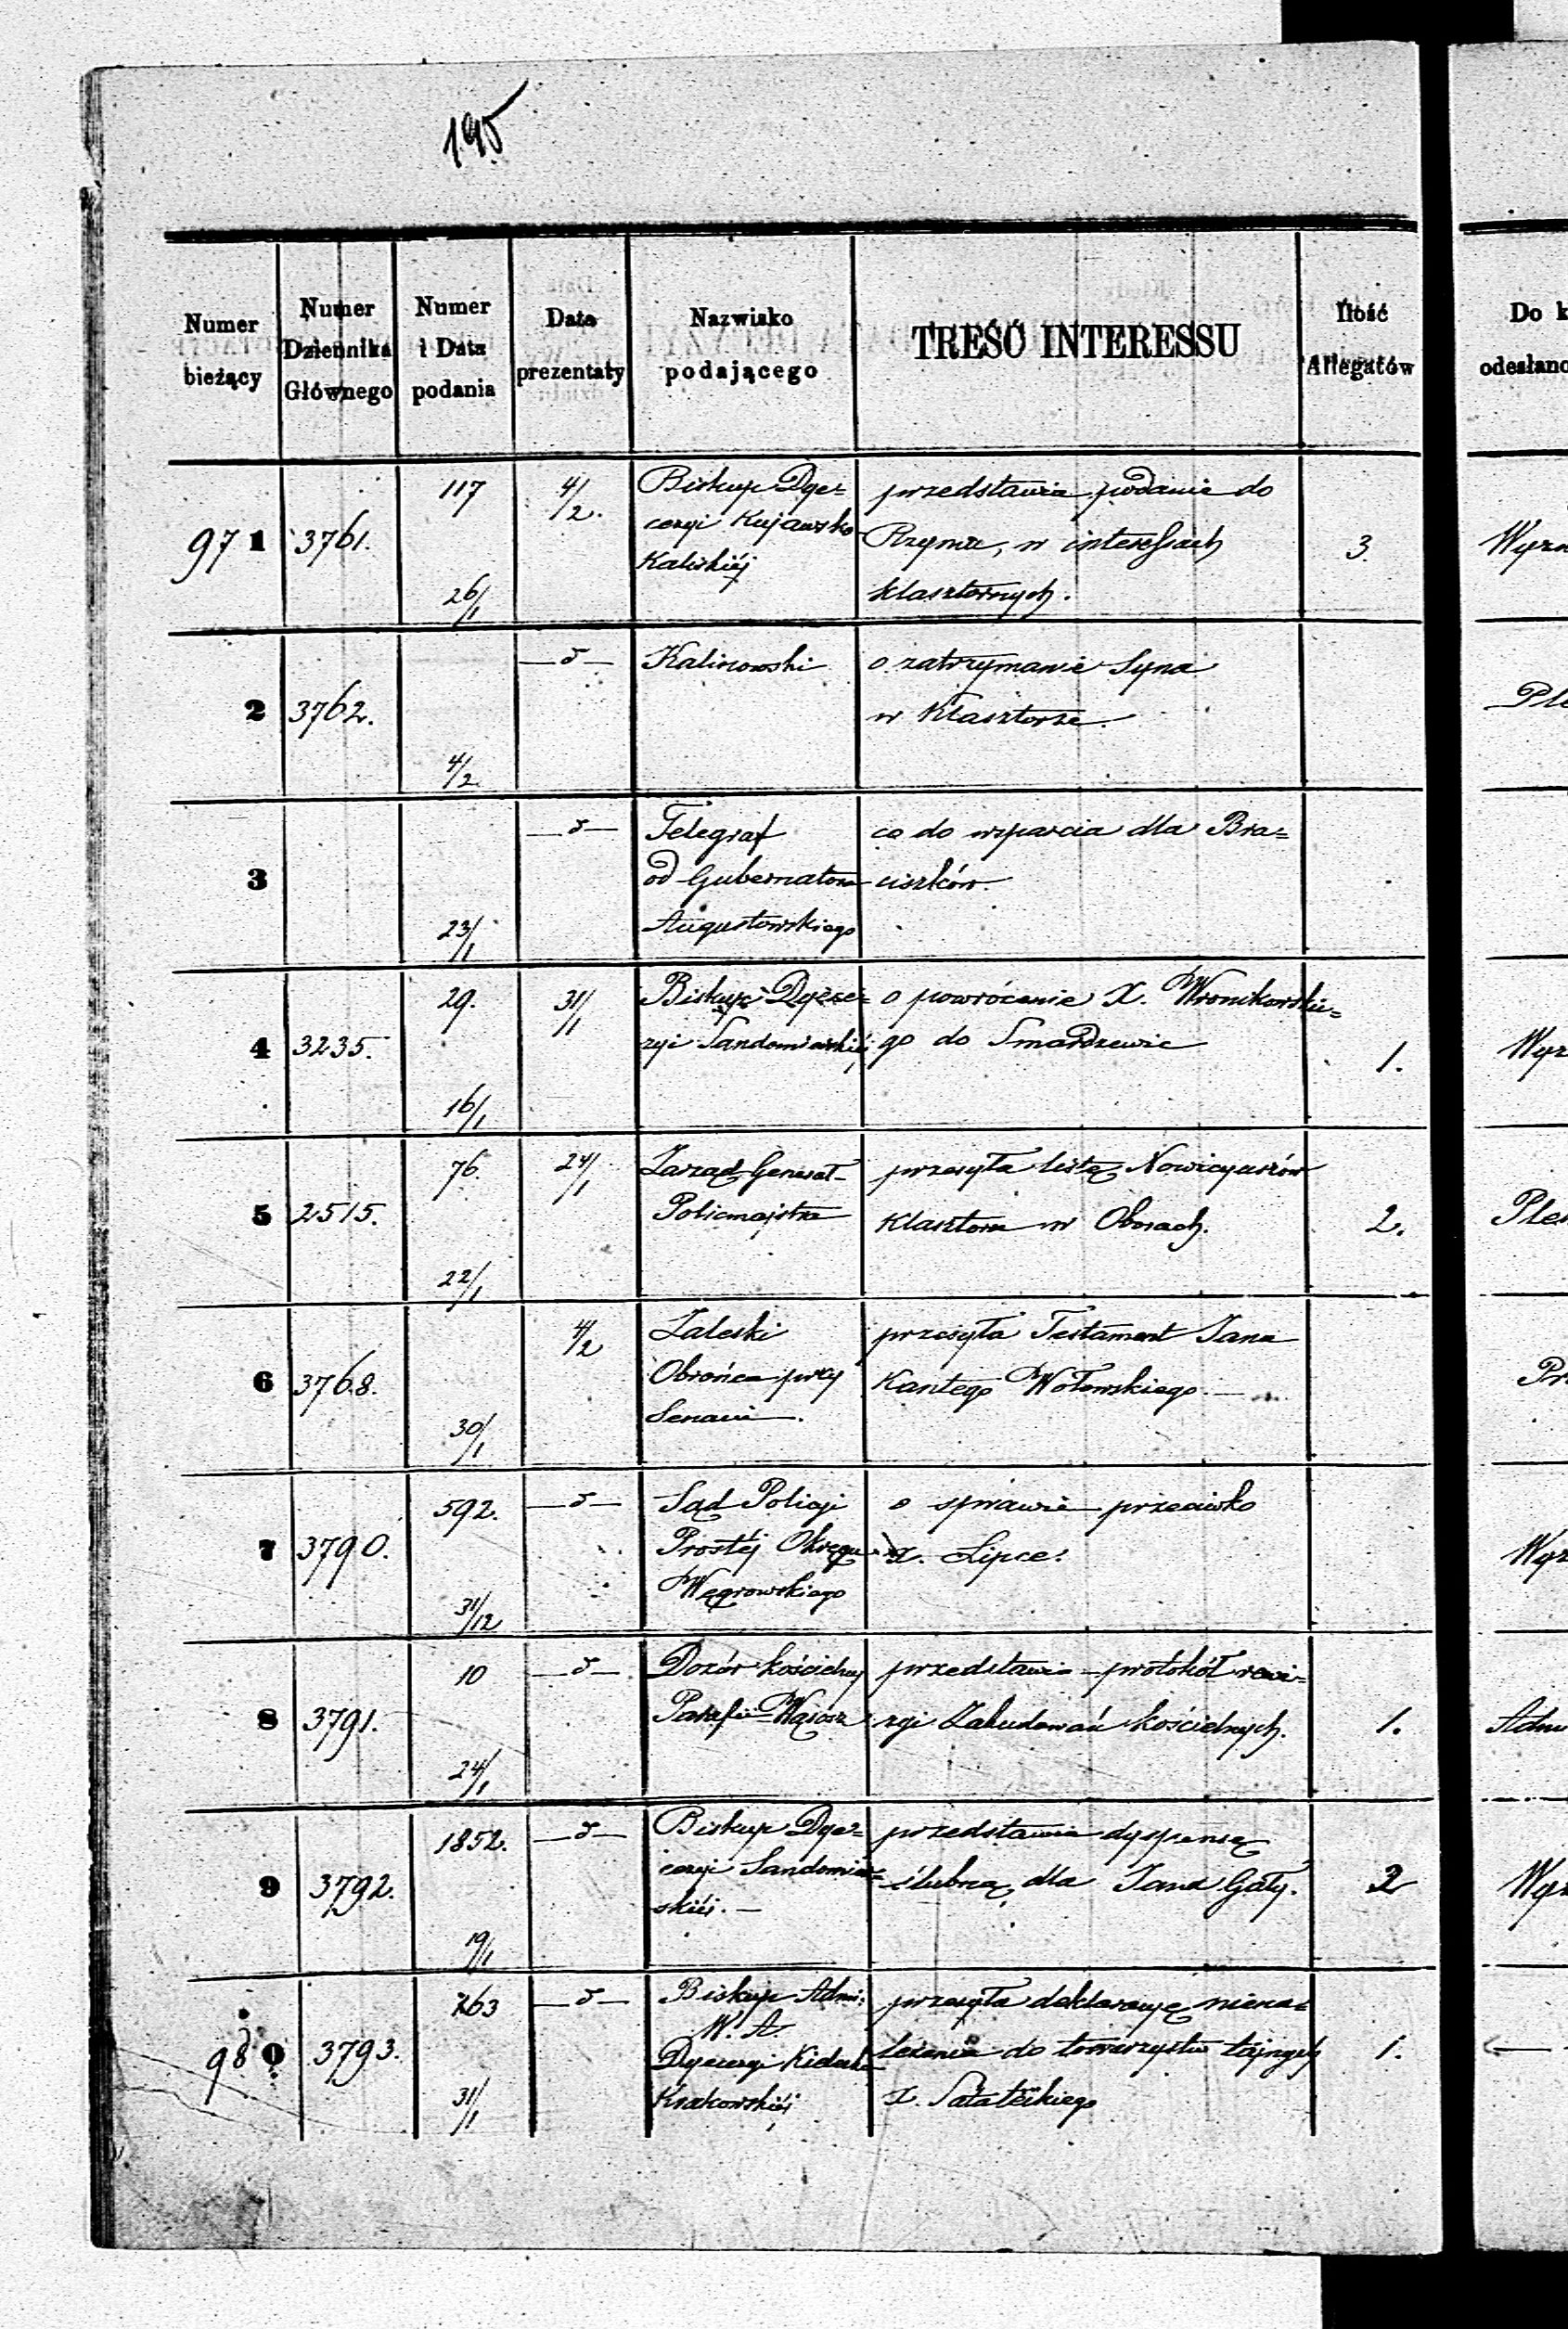 195
Numer bieżący
Numer Dziennika Głównego
Numer i Data podania
Data prezentaty
Nazwisko podającego
TREŚĆ INTERESSU
Ilość Allegatów
Do k
odesłano
971 3761. 117 26/1 4/2.
Biskup Dye=
cezyi Kujawsko
Kaliskiéj
przedstawia podanie do
Rzymu, w interessach
klasztornych.
3
Wyzn
2 3762. 4/2 —d—
Kalinowski
o zatrzymanie Syna
w Klasztorze.
Ple
3 23/1 —d—
Telegraf
od Gubernatora
Augustowskiego
co do wsparcia dla Bra=
ciszków.
4 3235. 29. 16/1 31/1
Biskup Dyece=
zyi Sandomierskiéj
o powrócenie X. Wronikowskie=
go do Smardzewic
1.
Wyz
5 2515. 76. 22/1 24/1
Zarząd Generał
Policmajstra
przesyła listę Nowicyuszów
Klasztoru w Oborach.
2.
Ple
6 3768. 30/1 4/2
Zaleski
Obrońca przy
Senacie.
przesyła Testament Jana
Kantego Wołowskiego.
Pr
7 3790. 592. 31/12 —d—
Sąd Policyi
Prostéj Okręgu
Węgrowskiego
o sprawie przeciwko
X. Lipce.
Wyz
8 3791. 10 24/1 —d—
Dozór kościelny
Parafii Wąsosz
przedstawia protokół rewi=
zyi Zabudowań kościelnych.
1.
Adm
9 3792. 1852. 19/1 —d—
Biskup Dye=
cezyi Sandomier=
skiéj.
przedstawia dyspensę
ślubną, dla Jana Gały.
2
Wyz
980 3793. 763 31/1 —d—
Biskup Adm:
Dyecezyi Kielecko
Krakowskiéj
przesyła deklaracyę niena=
leżenia do towarzystw tajnych
X.
1.